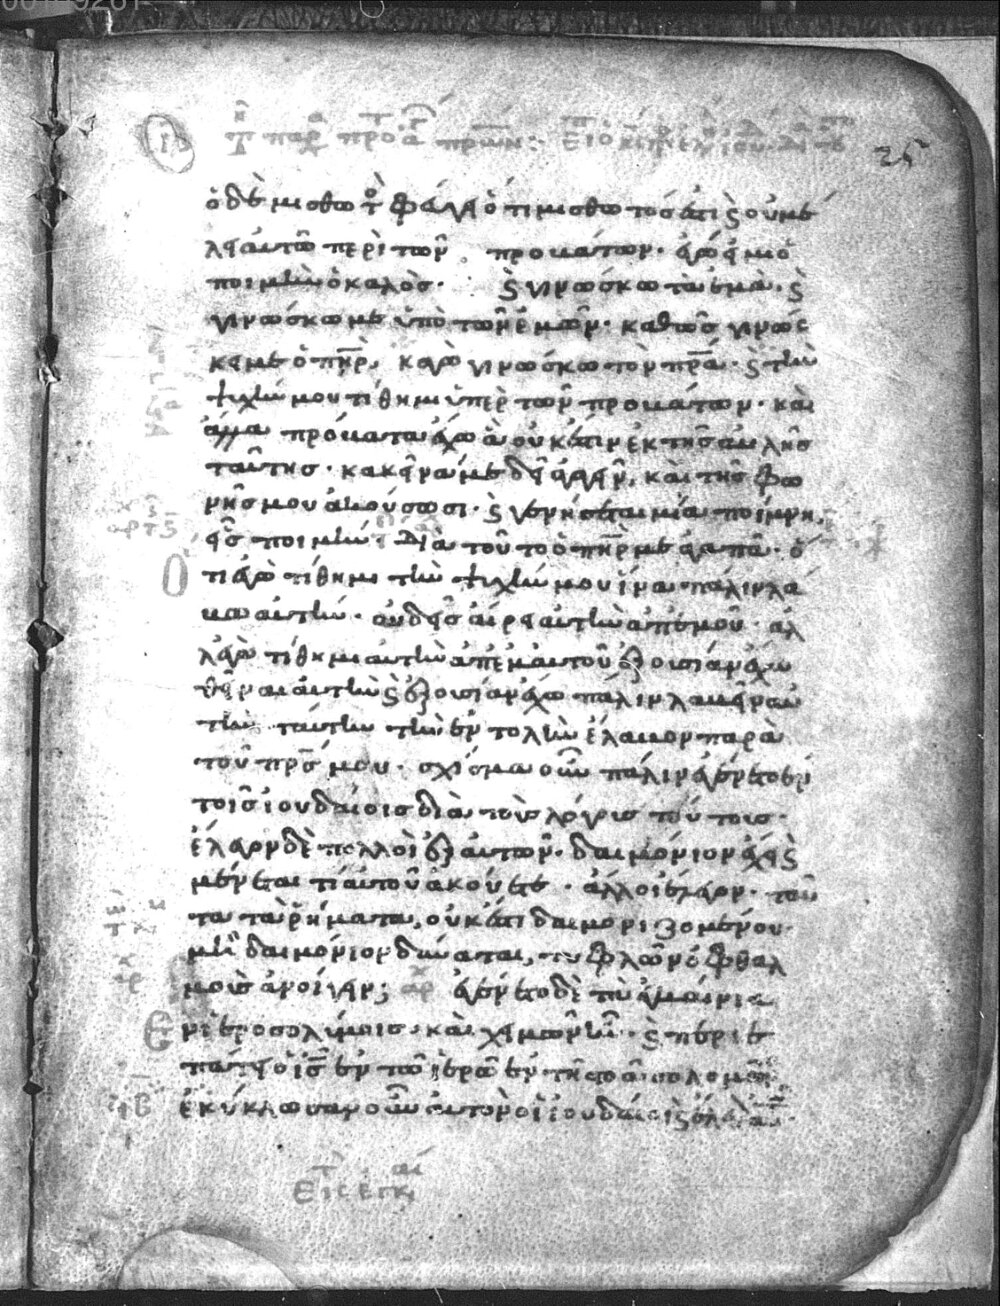 ὁ δὲ μισθωτὸς φεύγει ὅτι μισθωτός ἐστι καὶ οὐ μέ
λει αὐτῷ περὶ τῶν προβάτων· ἐγώ εἰμι ὁ
ποιμὴν ὁ καλός· καὶ γινώσκω τὰ ἐμὰ· καὶ
γινώσκομαι ὑπὸ τῶν ἐμῶν· καθὼς γινώσ
κει με ὁ πηρ, καγὼ γινώσκω τὸν πρα· καὶ τὴν
ψυχήν μου τίθημι ὑπὲρ τῶν προβάτων· καὶ
ἄλλα πρόβατα ἔχω ἃ οὐκ ἔστιν ἐκ τῆς αὐλῆς
ταύτης· κακεῖνά με δεῖ ἀγαγεῖν, καὶ τῆς φω
νῆς μου ἀκούσωσι· καὶ γενήσεται μία ποίμνη,
εἷς ποιμήν· Διὰ τοῦτο ὁ πηρ με ἀγαπᾷ· ὅ
τι ἐγὼ τίθημι τὴν ψυχήν μου ἵνα πάλιν λά
βω αὐτήν· οὐδεὶς αἴρει αὐτὴν ἀπ' ἐμοῦ· ἀλ
λ' ἐγὼ τίθημι αὐτὴν ἀπ' ἐμαυτοῦ ἐξουσίαν ἔχω
θεῖναι αὐτὴν καὶ ἐξουσίαν ἔχω πάλιν λαβεῖν αὐ
τὴν ταύτην τὴν ἐντολὴν ἔλαβον παρὰ
τοῦ πρς μου· σχίσμα οὖν πάλιν ἐγένετο ἐν
τοῖς ἰουδαίοις διὰ τοὺς λόγους τούτους·
ἔλεγον δὲ πολλοὶ ἐξ αὐτῶν· δαιμόνιον ἔχει καὶ
μαίνεται τί αὐτοῦ ἀκούετε· ἄλλοι ἔλεγον· ταῦ
τα τὰ ῥήματα, οὐκ ἔστι δαιμονιζομένου·
μὴ δαιμόνιον δύναται, τυφλῶν ὀφθαλ
μοὺς ἀνοίγειν; ἐγένετο δὲ τὰ ἐγκαίνια
ἐν ἱεροσολύμοις· καὶ χειμὼν ἦν· καὶ περιε
πάτει ὁ ις ἐν τῷ ἱερῷ ἐν τῇ στοᾷ σολομῶν
ἐκύκλωσαν οὖν αὐτὸν οἱ ἰουδαῖοι καὶ ἔλεγον